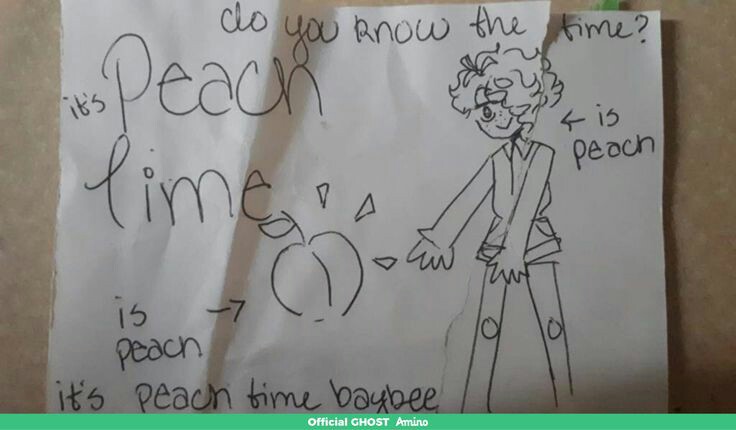 do you know the time?
it's Peach
time
← is
peach
is →
peach
it's peach time baybee
Official GHOST Amino